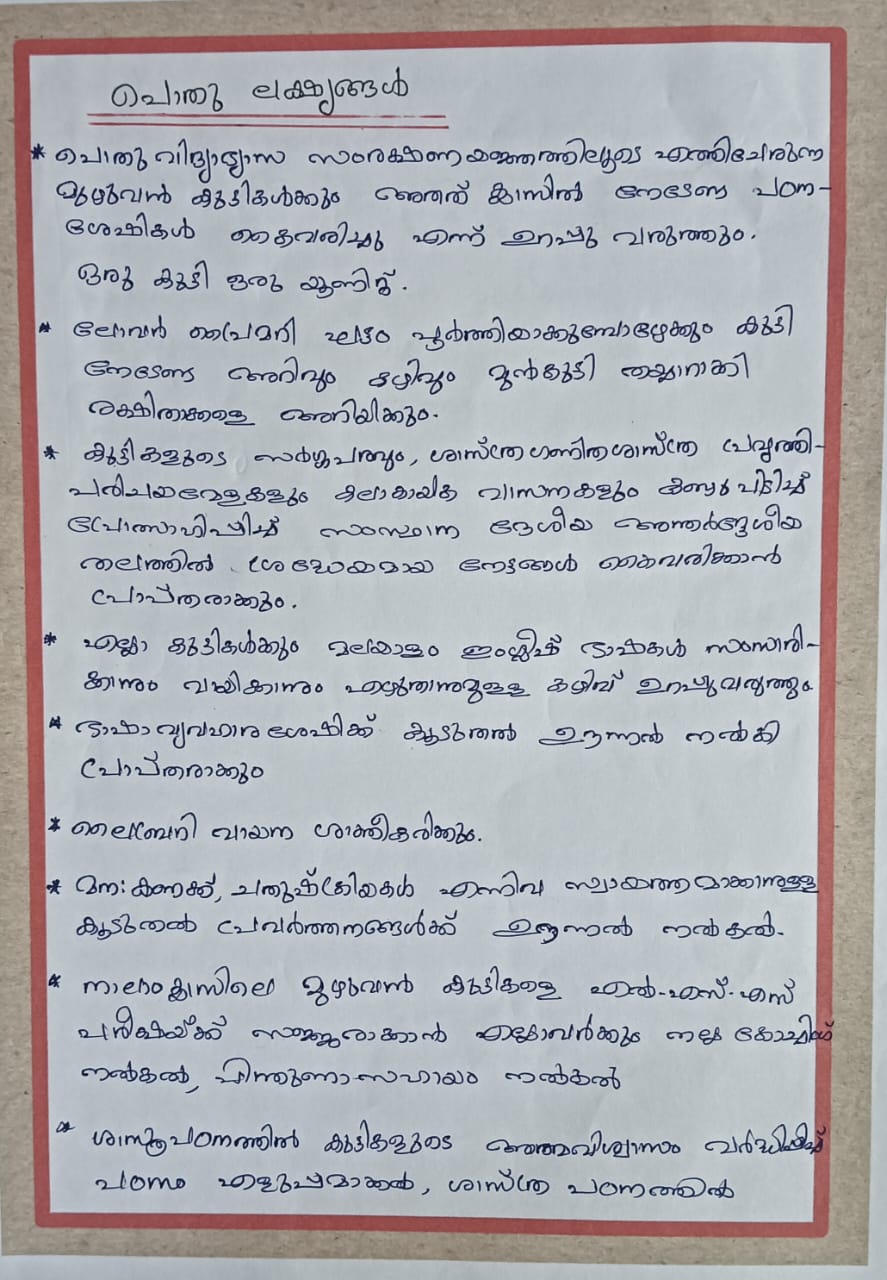 പൊതു ലക്ഷ്യങ്ങൾ
* പൊതു വിദ്യാഭ്യാസ സംരക്ഷണയജ്ഞത്തിലൂടെ എത്തിചേരുന്ന
മുഴുവൻ കുട്ടികൾക്കും അതത് ക്ലാസിൽ നേടേണ്ട പഠന-
ശേഷികൾ കൈവരിച്ചു എന്ന് ഉറപ്പു വരുത്തും.
ഒരു കുട്ടി ഒരു യൂണിറ്റ്.
* ലോവർ പ്രൈമറി ഘട്ടം പൂർത്തിയാക്കുമ്പോഴേക്കും കുട്ടി
നേടേണ്ട അറിവും കഴിവും മുൻകൂട്ടി തയ്യാറാക്കി
രക്ഷിതാക്കളെ അറിയിക്കും.
* കുട്ടികളുടെ സർഗ്ഗപരവും, ശാസ്ത്രഗണിതശാസ്ത്ര പ്രവൃത്തി-
പരിചയമേളകളും കലാകായിക വാസനകളും കണ്ടുപിടിച്ച്
പ്രോത്സാഹിപ്പിച്ച് സംസ്ഥാന ദേശീയ അന്തർദ്ദേശീയ
തലത്തിൽ ശ്രദ്ധേയമായ നേട്ടങ്ങൾ കൈവരിക്കാൻ
പ്രാപ്തരാക്കും.
* എല്ലാ കുട്ടികൾക്കും മലയാളം ഇംഗ്ലീഷ് ഭാഷകൾ സംസാരി-
ക്കാനും വായിക്കാനും എഴുതാനുമുള്ള കഴിവ് ഉറപ്പുവരുത്തും
* ഭാഷാ വ്യവഹാരശേഷിക്ക് കൂടുതൽ ഊന്നൽ നൽകി
പ്രാപ്തരാക്കും
* ലൈബ്രറി വായന ശാക്തീകരിക്കും.
* മന:കണക്ക്, ചതുഷ്ക്രിയകൾ എന്നിവ സ്വായത്തമാക്കാനുള്ള
കൂടുതൽ പ്രവർത്തനങ്ങൾക്ക് ഊന്നൽ നൽകൽ.
* നാലാംക്ലാസിലെ മുഴുവൻ കുട്ടികളെ എൽ-എസ്-എസ്
പരീക്ഷയ്ക്ക് സജ്ജരാക്കാൻ എല്ലാവർക്കും നല്ല കോച്ചിങ്
നൽകൽ, പിന്തുണാസഹായം നൽകൽ
* ശാസ്ത്രപഠനത്തിൽ കുട്ടികളുടെ ആത്മവിശ്വാസം വർദ്ധിപ്പിച്ച്
പഠനം എളുപ്പമാക്കൽ, ശാസ്ത്ര പഠനത്തിൽ